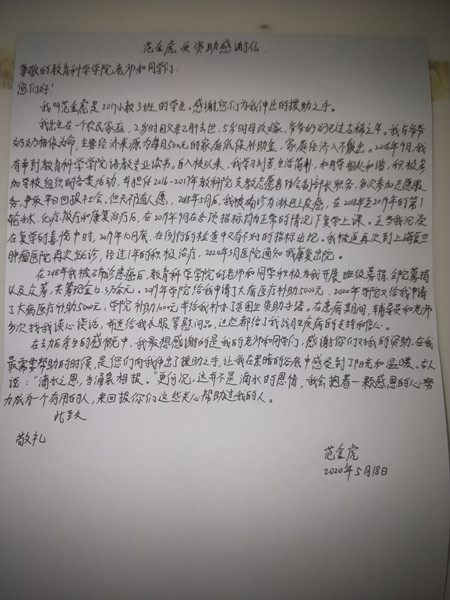 范金虎受资助感谢信
尊敬的教育科学学院老师和同学们:
您们好!
我叫范金虎是2017小教3班的学生。感谢您们为我伸出的援助之手。
我出生在一个农民家庭,2岁时因父亲去世,5岁时母改嫁,爷爷奶奶已过古稀之年。我与爷爷
奶奶为相依为命,主要经济来源为每月500元的家庭低保补助金,家庭经济入不敷出。2016年9月,我
有幸到教育科学学院语教专业读书。自入校以来,我学习刻苦生活简朴,和同学相处和谐,积极参
加学校组织的各类活动,并担任2016-2017年教科院支教志愿者协会副部长职务,多次参加志愿服
务,争取早日回报社会。但天不遂人愿,2018年3月,我被确诊为淋巴上皮癌,在2018年至2019年的第1
轮手术、化疗、放疗和康复治疗后,在2019年9月在各项指标均正常的情况下复学上课。正当我沉浸
在复学的喜悦中时,2019年10月底,在例行的检查中又有不好的指标出现。我被迫再次到上海复旦
肿瘤医院再次就诊,经过1年的积极治疗,2020年3月医院通知我康复出院。
在2018年我被确诊患癌后,教育科学学院的老师和同学积极为我开展班级募捐、学院募捐
以及众筹,共筹现金13万余元。2019年学院给我申请了大病医疗补助5000元,2020年学院又给我申请
了大病医疗补助5000元,学院补助1600元并给我补办了贫困生资助手续。在患病期间,辅导员和老师
多次找我谈心谈话,并送给我衣服等慰问品,这些都给了我战胜疾病的支持和信心。
在去办
最需要帮助的时候,是您们向我伸出了援助之手,让我在黑暗的谷底中感受到了阳光和温暖。古人
话:“滴水之恩,当涌泉相报。”更何况,这并不是滴水的恩情,我会抱着一颗感恩的心努
力成为一个有用的人,来回报你们这些关心帮助过我的人。
此致
敬礼
范金虎
2020年5月18日